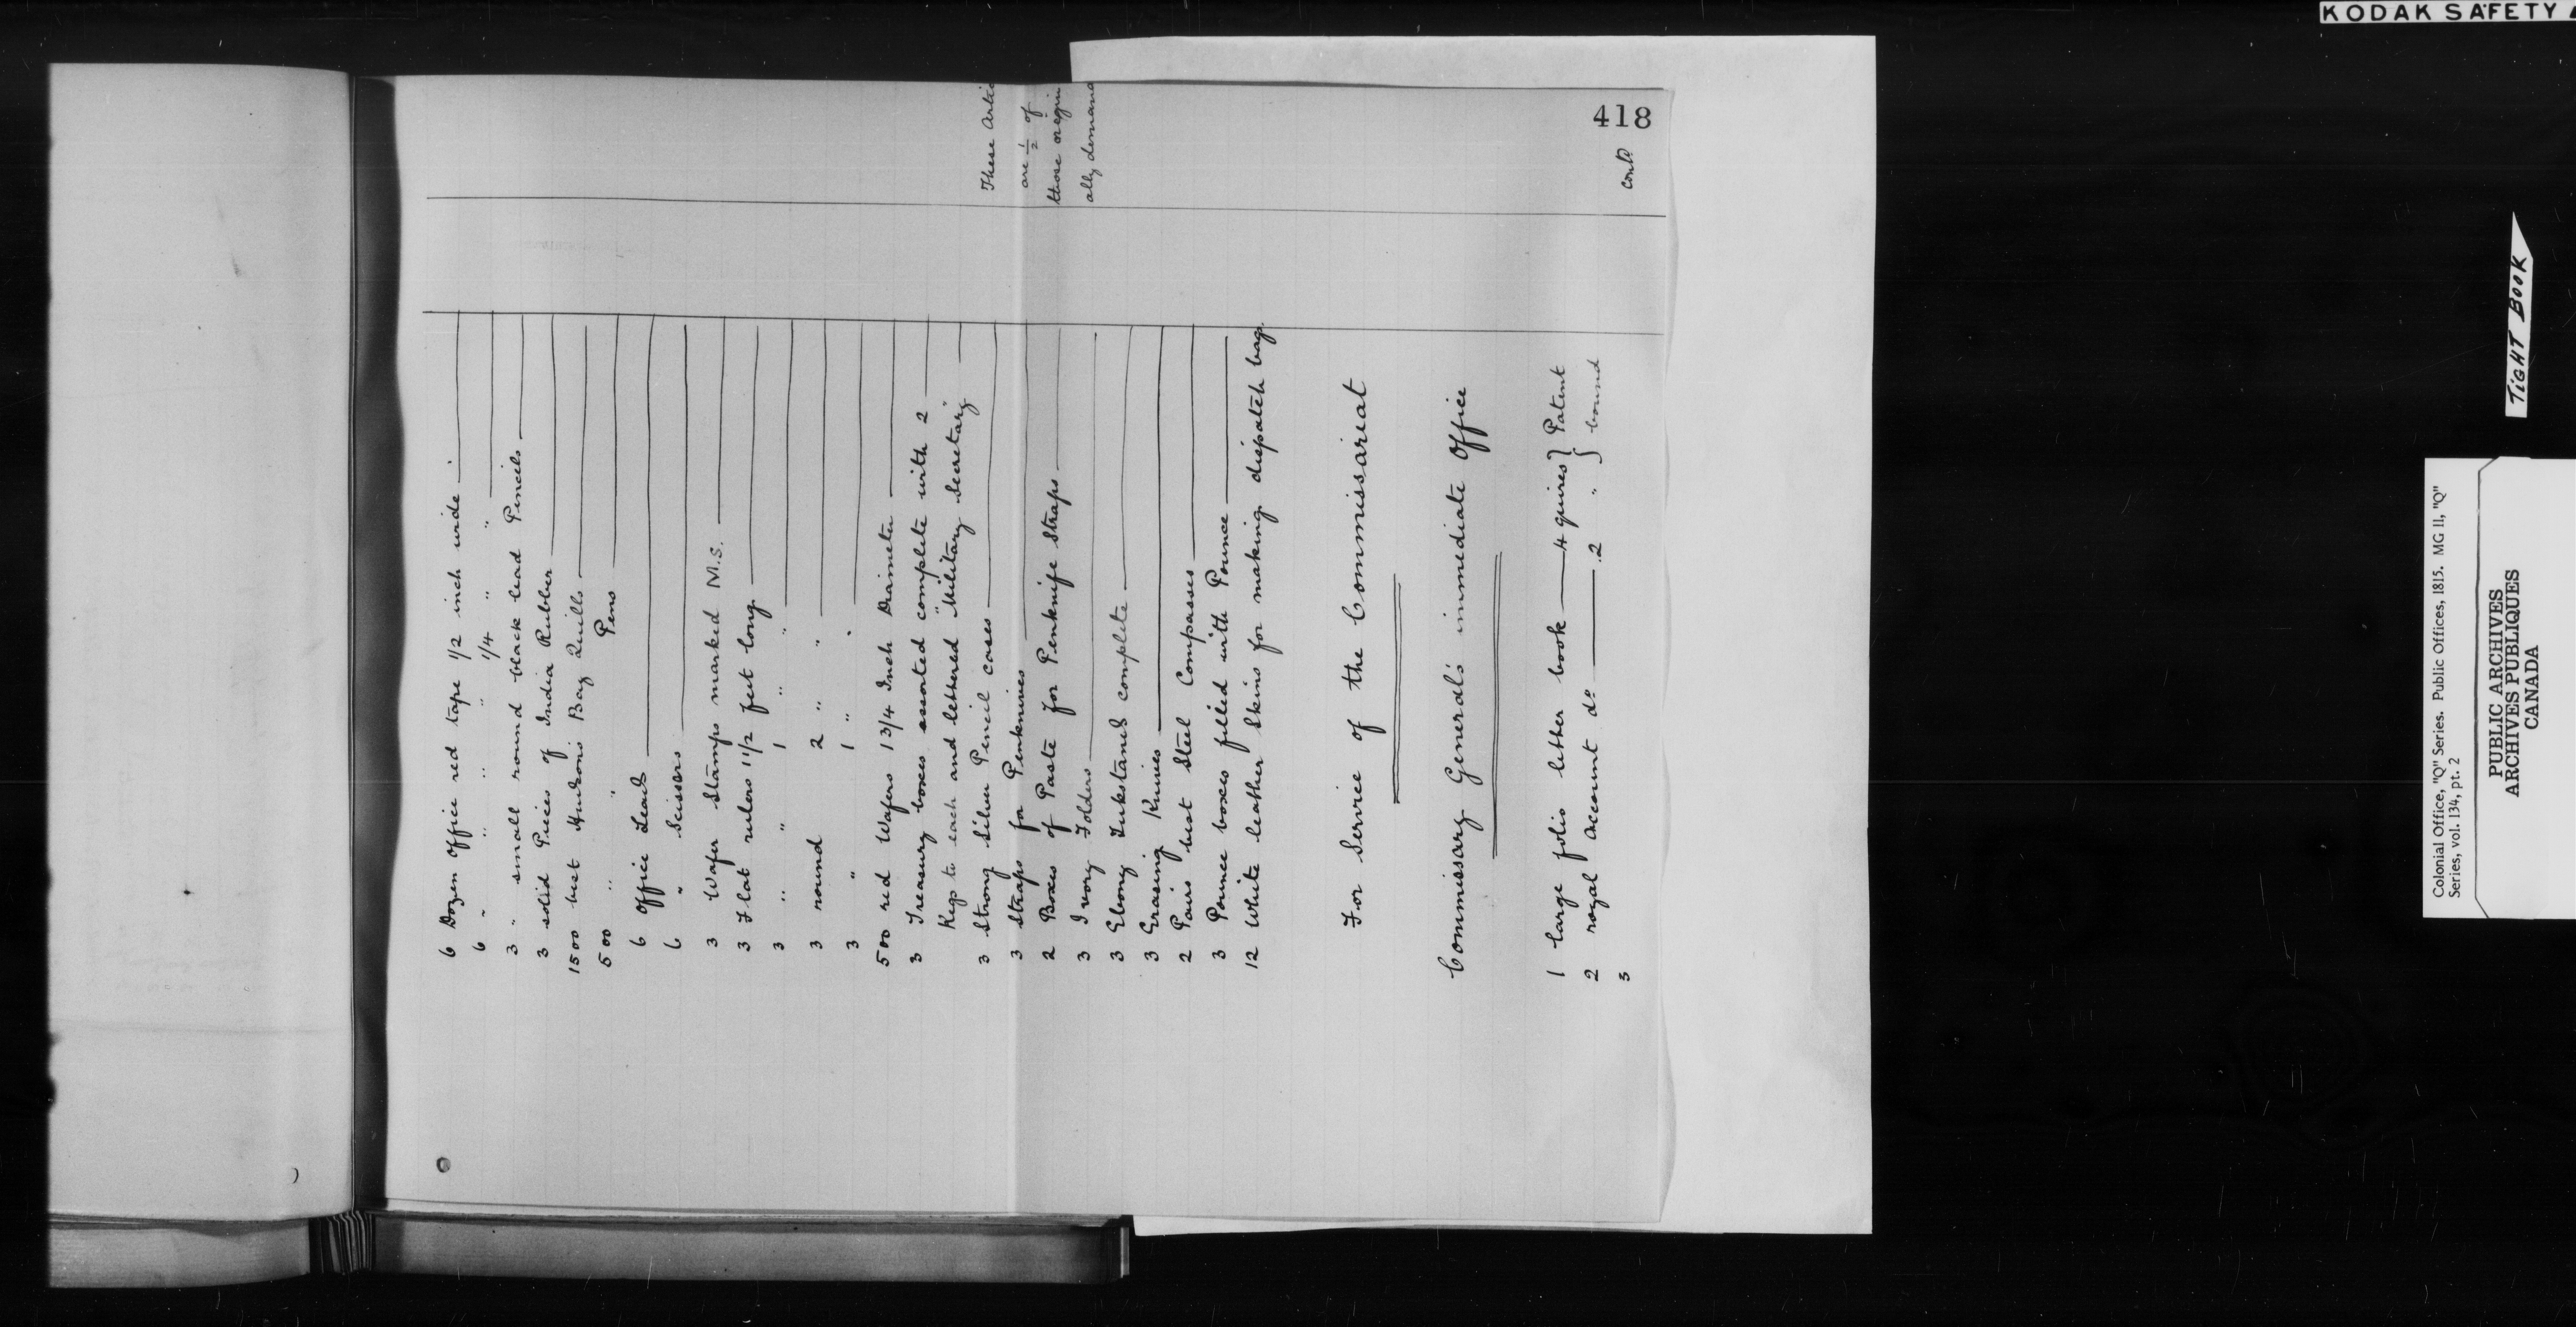 418
6 Dozen Office red tape 1/2 inch wide
6 " " " " 1/4 " "
3 " small round black lead Pencils
3 solid Pieces of India Rubber
1500 best Hudson's Bay Quills
500 " " Pens
6 Office Leads
6 " Scissors
3 Wafer Stamps marked M.S.
3 Flat rulers 1 1/2 feet long
3 " " 1 " "
3 round 2 " "
3 " 1 " "
500 red Wafers 1 3/4 Inch Diameter
3 Treasury boxes assorted complete with 2
Keys to each and lettered "Military Secretary"
3 Strong Silver Pencil cases
3 Straps for Penknives
2 Boxes of Paste for Penknife Straps
3 Ivory Folders
3 Ebony Inkstands complete
3 Erasing Knives
2 Pairs best Steel Compasses
3 Pounce boxes filled with Pounce
12 White leather Skins for making dispatch bags.
These Artic
are 1/2 of
those origin
ally demand
For Service of the Commissariat
Commissary General's immediate Office
1 large folio letter book 4 quires } Patent
2 royal account do 2 " } bound
3
contd
KODAK SAFETY
TIGHT BOOK
Colonial Office, "Q" Series. Public Offices, 1815. MG 11, "Q"
Series, vol. 134, pt. 2
PUBLIC ARCHIVES
ARCHIVES PUBLIQUES
CANADA